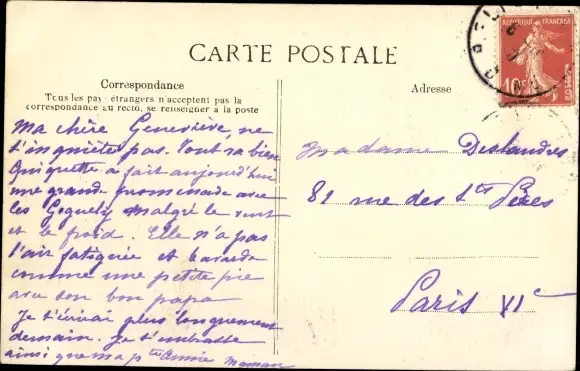 CARTE POSTALE
Correspondance
Tous les pays étrangers n'acceptent pas la
correspondance au recto, se renseigner à la poste
Adresse
REPUBLIQUE FRANÇAISE
10c
POSTES
Ma chère Geneviève, ne
t'inquiète pas. Tout va bien
Guiguette a fait aujourd'hui
une grande promenade avec
les malgré le vent
et le froid. Elle n'a pas
l'air fatiguée et bavarde
comme une petite pie
avec son bon papa
Je t'écrirai plus longuement
demain. Je t'embrasse
ainsi que ma ptte Annie Maman
Madame Deslandres
81 rue des Sts Pères
Paris VIe